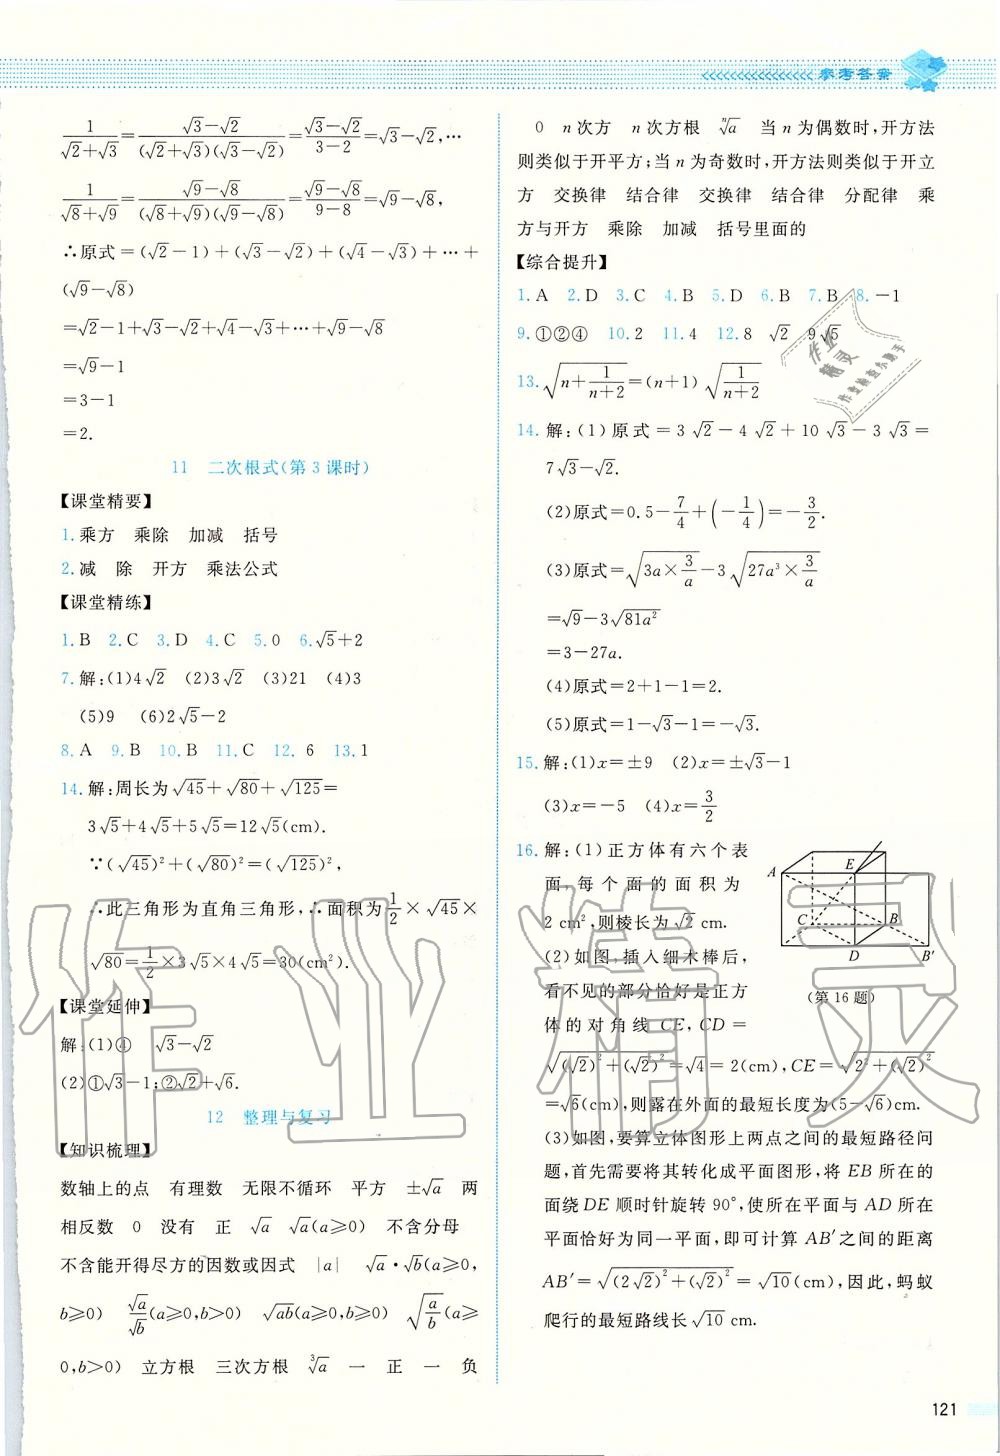 参考答案
1/(√2+√3)=(√3−√2)/((√2+√3)(√3−√2))=(√3−√2)/(3−2)=√3−√2,…
1/(√8+√9)=(√9−√8)/((√8+√9)(√9−√8))=(√9−√8)/(9−8)=√9−√8,
∴原式=(√2−1)+(√3−√2)+(√4−√3)+…+
(√9−√8)
=√2−1+√3−√2+√4−√3+…+√9−√8
=√9−1
=3−1
=2.
11 二次根式(第3课时)
【课堂精要】
1.乘方 乘除 加减 括号
2.减 除 开方 乘法公式
【课堂精练】
1.B 2.C 3.D 4.C 5.0 6.√5+2
7.解:(1)4√2 (2)3√2 (3)21 (4)3
(5)9 (6)2√5−2
8.A 9.B 10.B 11.C 12.6 13.1
14.解:周长为√45+√80+√125=
3√5+4√5+5√5=12√5(cm).
∵(√45)²+(√80)²=(√125)²,
∴此三角形为直角三角形,∴面积为1/2×√45×
√80=1/2×3√5×4√5=30(cm²).
【课堂延伸】
解:(1)④ √3−√2
(2)①√3−1;②√2+√6.
12 整理与复习
【知识梳理】
数轴上的点 有理数 无限不循环 平方 ±√a 两
相反数 0 没有 正 √a √a(a≥0) 不含分母
不含能开得尽方的因数或因式 |a| √a·√b(a≥0,
b≥0) √a/√b(a≥0,b>0) √ab(a≥0,b≥0) √(a/b)(a≥
0,b>0) 立方根 三次方根 ³√a 一 正 一 负
0 n次方 n次方根 ⁿ√a 当n为偶数时,开方法
则类似于开平方;当n为奇数时,开方法则类似于开立
方 交换律 结合律 交换律 结合律 分配律 乘
方与开方 乘除 加减 括号里面的
【综合提升】
1.A 2.D 3.C 4.B 5.D 6.B 7.B 8.−1
9.①②④ 10.2 11.4 12.8 √2 9√5
13.√(n+1/(n+2))=(n+1)√(1/(n+2))
14.解:(1)原式=3√2−4√2+10√3−3√3=
7√3−√2.
(2)原式=0.5−7/4+(−1/4)=−3/2.
(3)原式=√(3a×3/a)−3√(27a³×3/a)
=√9−3√(81a²)
=3−27a.
(4)原式=2+1−1=2.
(5)原式=1−√3−1=−√3.
15.解:(1)x=±9 (2)x=±√3−1
(3)x=−5 (4)x=3/2
16.解:(1)正方体有六个表
面,每个面的面积为
2 cm²,则棱长为√2 cm.
(2)如图,插入细木棒后,
看不见的部分恰好是正方
体的对角线CE,CD=
√((√2)²+(√2)²)=√4=2(cm),CE=√(2²+(√2)²)
=√6(cm),则露在外面的最短长度为(5−√6)cm.
(3)如图,要算立体图形上两点之间的最短路径问
题,首先需要将其转化成平面图形,将EB所在的
面绕DE顺时针旋转90°,使所在平面与AD所在
平面恰好为同一平面,即可计算AB′之间的距离
AB′=√((2√2)²+(√2)²)=√10(cm),因此,蚂蚁
爬行的最短路线长√10 cm.
A E C B D B′
(第16题)
作业
精灵
作业检查小助手
作业精灵
121